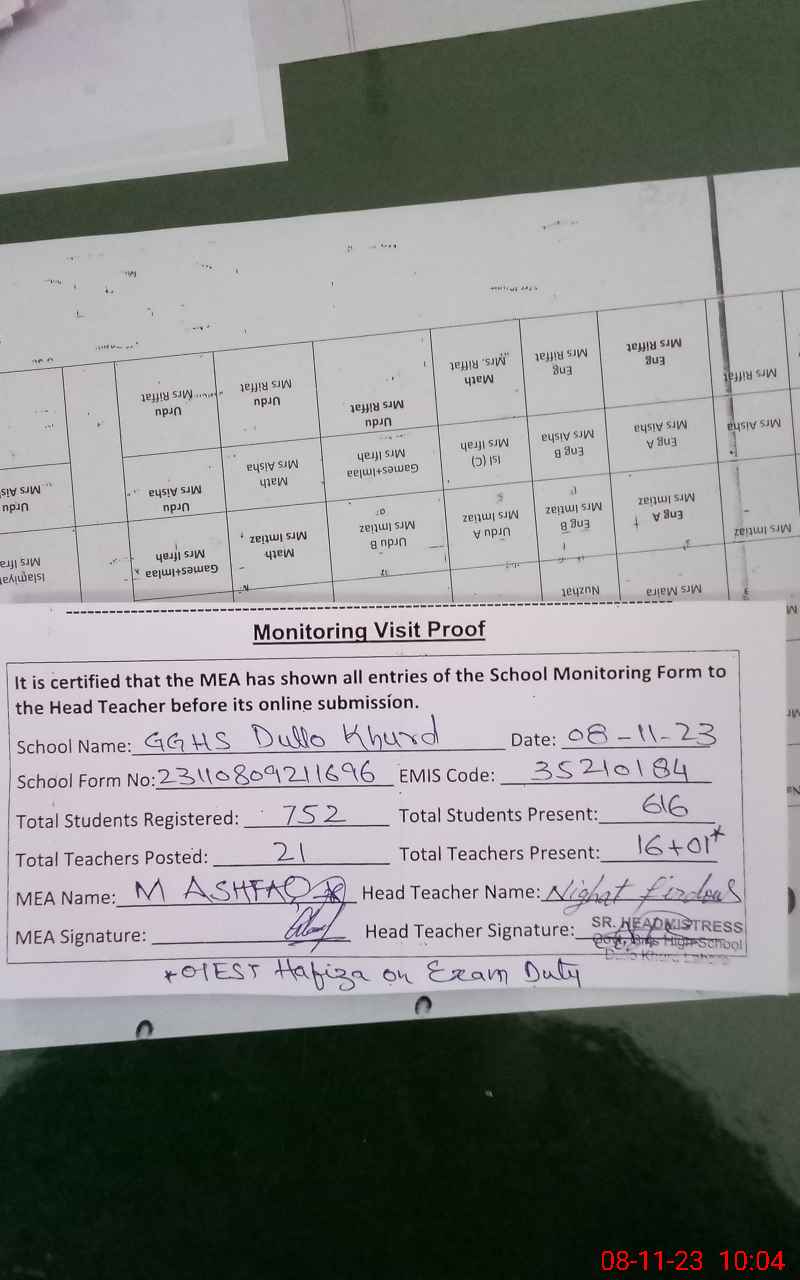 Mrs Riffat
Eng
Mrs Riffat
Eng
Mrs Riffat
Math
Mrs. Riffat
Urdu
Mrs Riffat
Urdu
Mrs Riffat
Urdu
Mrs Riffat
Mrs Aisha
Eng A
Mrs Aisha
Eng B
Mrs Aisha
Isl (C)
Mrs Ifrah
Games+Imlaa
Mrs Ifrah
Math
Mrs Aisha
Urdu
Mrs Aisha
Urdu
Mrs Imtiaz
Eng A
Mrs Imtiaz
Eng B
Mrs Imtiaz
Urdu A
Mrs Imtiaz
Urdu B
Mrs Imtiaz
Math
Mrs Imtiaz
Games+Imlaa
Mrs Ifrah
Mrs Maira
Nuzhat
Monitoring Visit Proof
It is certified that the MEA has shown all entries of the School Monitoring Form to
the Head Teacher before its online submission.
School Name: GGHS Dullo Khurd Date: 08-11-23
School Form No: 23110809211696 EMIS Code: 35210184
Total Students Registered: 752 Total Students Present: 616
Total Teachers Posted: 21 Total Teachers Present: 16+01*
MEA Name: M ASHFAQ Head Teacher Name: Nighat firdous
MEA Signature: Head Teacher Signature: SR. HEADMISTRESS
Govt. Girls High School
Dullo Khurd Lahore
*01EST Hafiza on Exam Duty
08-11-23 10:04